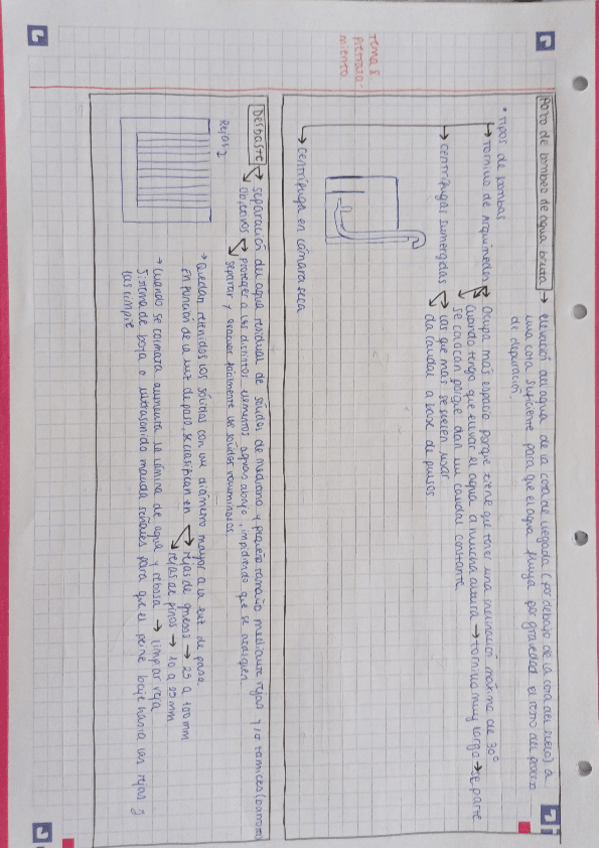 Tema 8.
pretrata-
miento.
Pozo de bombeo de agua bruta → elevación del agua de la cota de llegada (por debajo de la cota del suelo) a
una cota suficiente para que el agua fluya por gravedad el resto del proceso
de depuración
* Tipos de bombas
→ tornillo de Arquímedes → Ocupa más espacio porque tiene que tener una inclinación máxima de 30º
cuando tenga que elevar el agua a mucha altura → tornillo muy largo → se parte
se colocan porque dan un caudal constante
→ centrífugas sumergidas → las que más se suelen usar
da caudal a base de pulsos
→ centrífuga en cámara seca
Desbaste → separación del agua residual de sólidos de mediano y pequeño tamaño mediante rejas y/o tamices
objetivos → proteger a los distintos elementos aguas abajo, impidiendo que se
separar y evacuar fácilmente los sólidos voluminosos
Rejas
→ quedan retenidos los sólidos con un diámetro mayor a la luz de paso.
En función de la luz de paso, se clasifican en → rejas de gruesos → 25 a 100 mm
rejas de finos → 10 a 25 mm
→ cuando se colmata aumenta la lámina de agua y rebosa → limpiar reja
Sistema de boya o ultrasonido manda señales para que el peine baje hasta las rejas y
las limpie